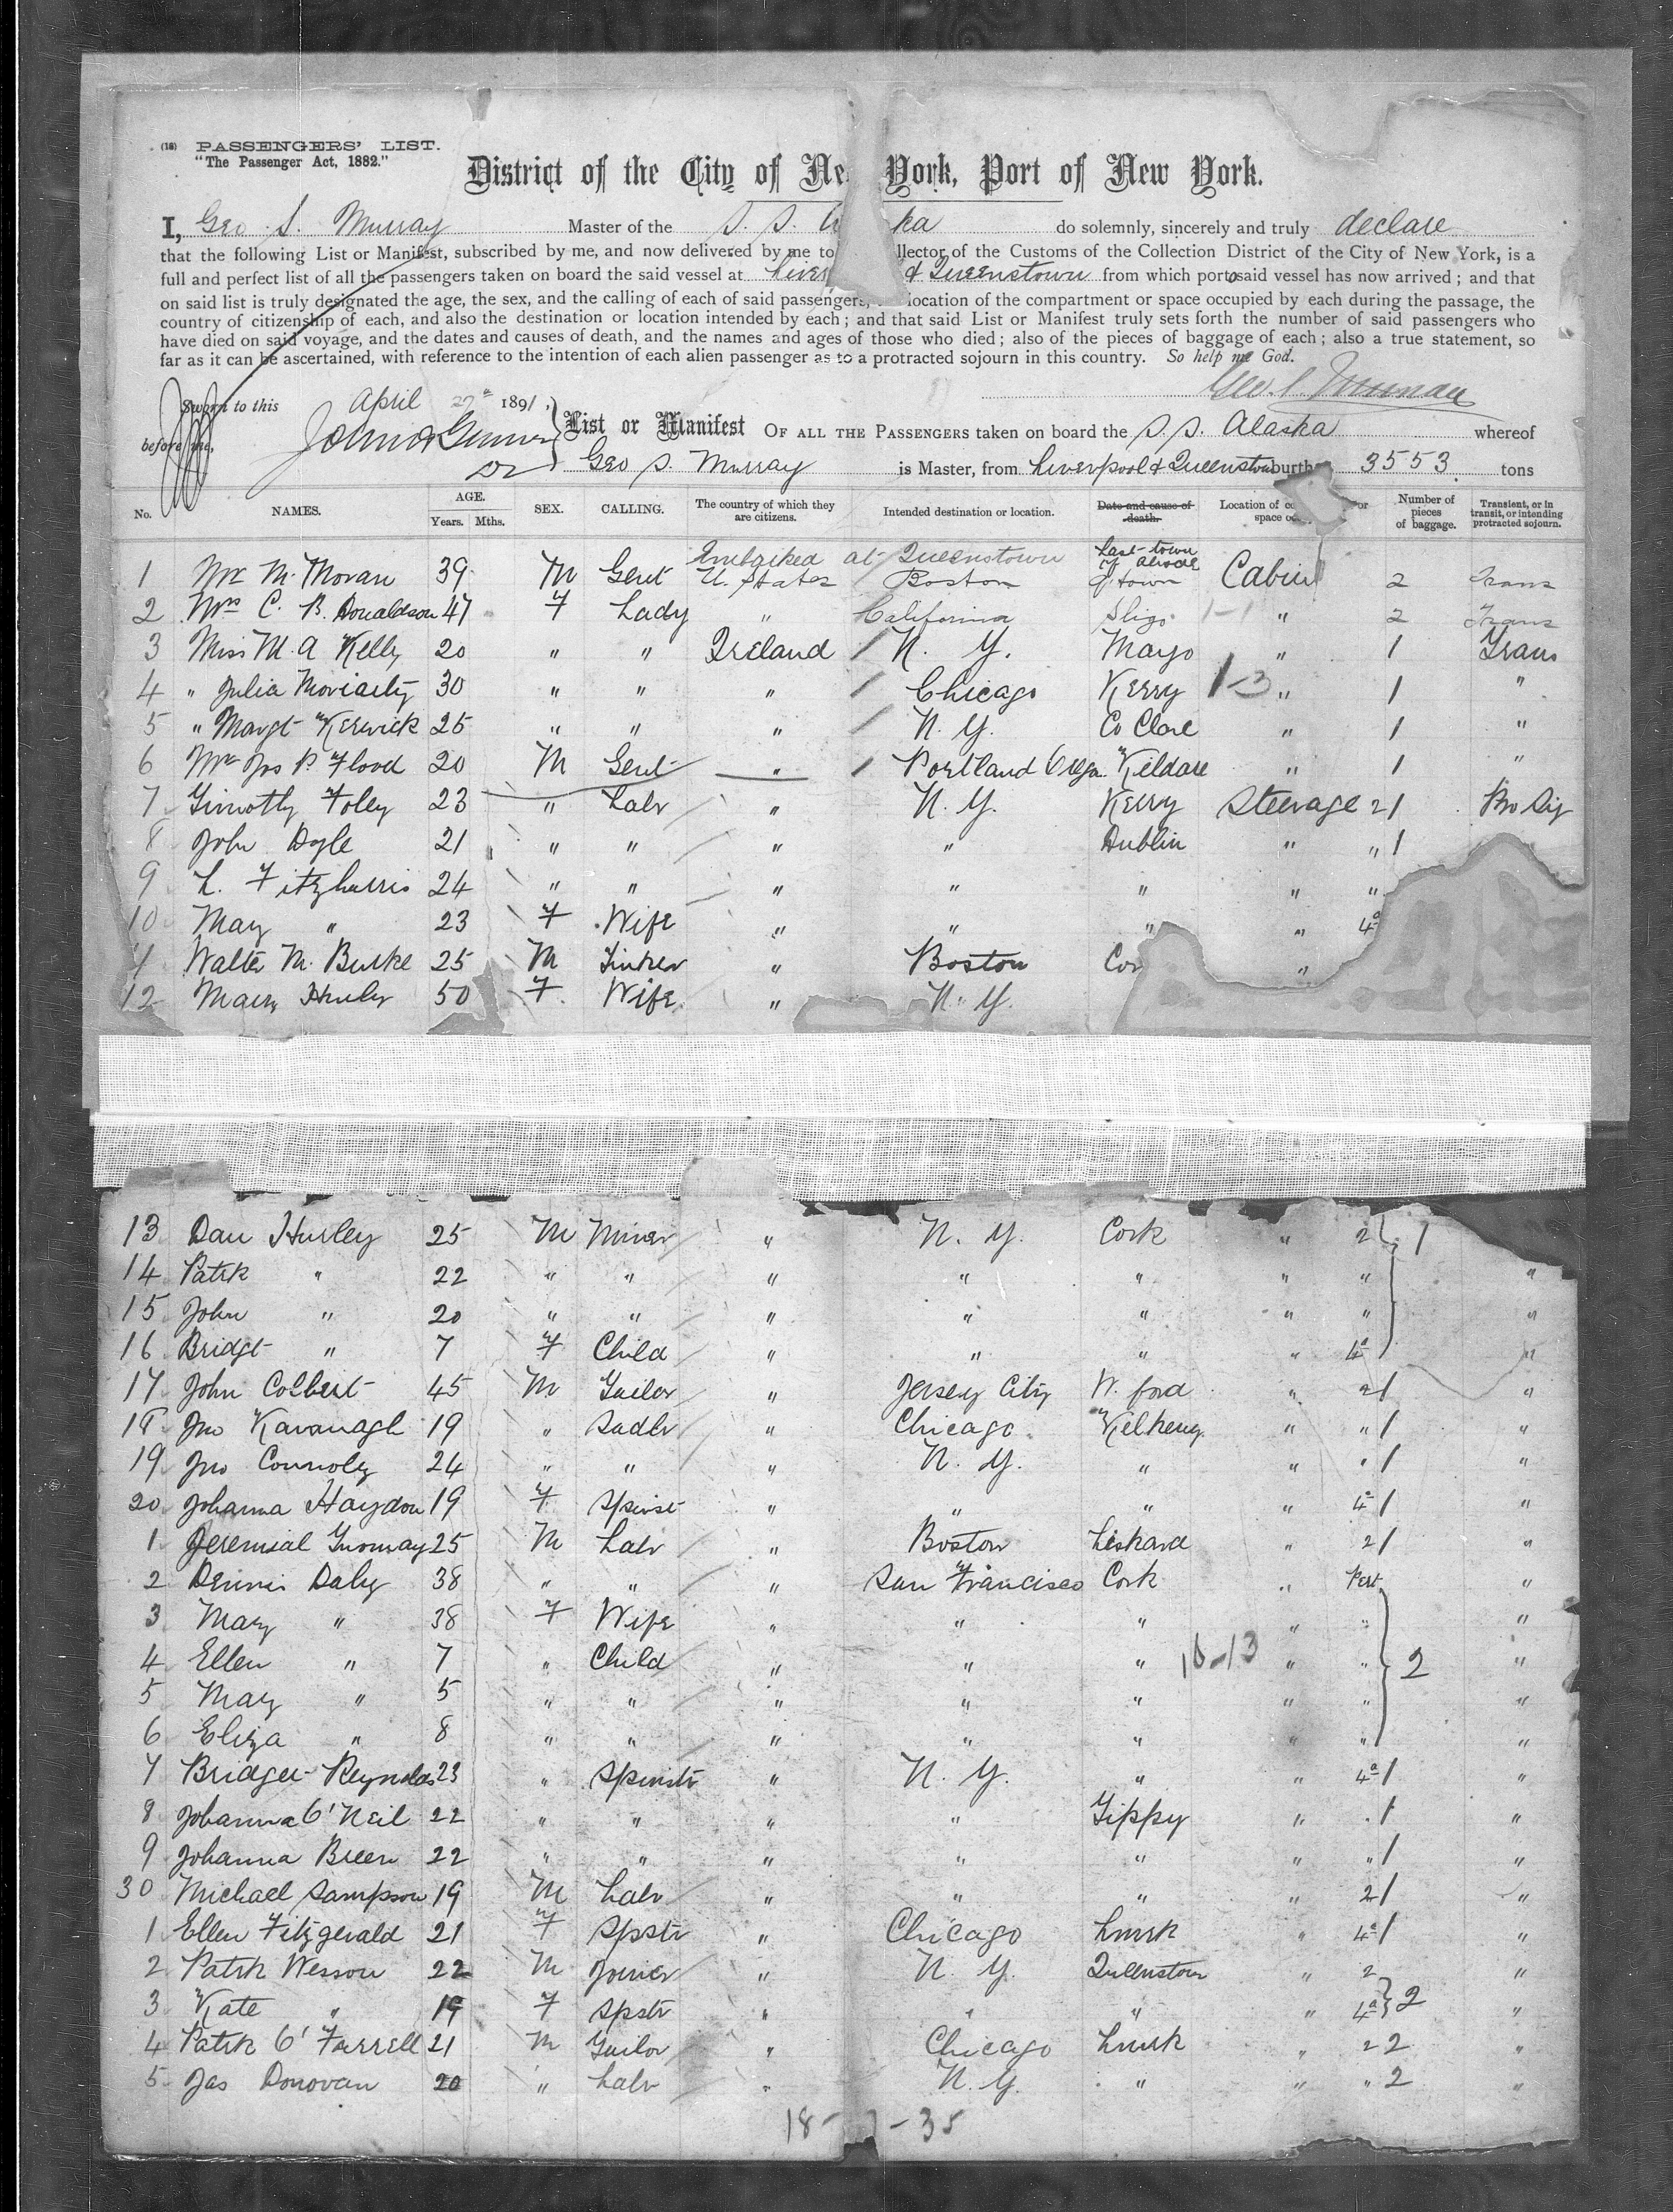 (18) PASSENGERS' LIST.
"The Passenger Act, 1882."
District of the City of Ne York, Port of New York.
I, Geo. S. Murray Master of the S. S. A ka do solemnly, sincerely and truly declare
that the following List or Manifest, subscribed by me, and now delivered by me to llector of the Customs of the Collection District of the City of New York, is a
full and perfect list of all the passengers taken on board the said vessel at Liver & Queenstown from which port s said vessel has now arrived; and that
on said list is truly designated the age, the sex, and the calling of each of said passengers, location of the compartment or space occupied by each during the passage, the
country of citizenship of each, and also the destination or location intended by each; and that said List or Manifest truly sets forth the number of said passengers who
have died on said voyage, and the dates and causes of death, and the names and ages of those who died; also of the pieces of baggage of each; also a true statement, so
far as it can be ascertained, with reference to the intention of each alien passenger as to a protracted sojourn in this country. So help me God.
Geo. S. Murray
Sworn to this April 27th 1891,
before me,
List or Manifest OF ALL THE PASSENGERS taken on board the S. S. Alaska whereof
Geo S. Murray is Master, from Liverpool & Queenstown burth 3553 tons
No. NAMES. AGE. Years. Mths. SEX. CALLING. The country of which they are citizens. Intended destination or location. Date and cause of death. Location of co or space oc Number of pieces of baggage. Transient, or in transit, or intending protracted sojourn.
Embarked at Queenstown Last town of abode
1 Mr M. Moran 39 M Gent U. States Boston Q town Cabin 2 Trans
2 Mrs C. B. Donaldson 47 F Lady " California Sligo 1-1 " 2 Trans
3 Miss M. A Kelly 20 " " Ireland / N. Y. Mayo " 1 Trans
4 " Julia Moriarty 30 " " " / Chicago Kerry 1-3 " 1 "
5 " Margt Kerwick 25 " " " / N. Y. Co Clare " 1 "
6 Mr Jos P. Flood 20 M Gent " / Portland Oregn. Kildare " 1 "
7 Timothy Foley 23 " Labr " N. Y. Kerry Steerage 2 1 Pro Sij
8 John Doyle 21 " " " " Dublin " " 1
9 L. Fitzharris 24 " " " " " " "
10 May " 23 F Wife " " " " 4a
11 Walter M. Burke 25 M Tinker " Boston Cor "
12 Mary Hurley 50 F. Wife " N. Y.
13 Dan Hurley 25 M Miner " N. Y. Cork " 2 1
14 Patrk " 22 " " " " " " " "
15 John " 20 " " " " " " " "
16 Bridgt " 7 F Child " " " " 4a "
17 John Colbert 45 M Tailor " Jersey City W. ford " 2 1 "
18 Jno Kavanagh 19 " Sadlr " Chicago Kilkeny " " 1 "
19 Jno Connoly 24 " " " N. Y. " " " 1 "
20 Johanna Haydon 19 F Spinst " " " " 4a 1 "
1 Jeremiah 25 M Labr " Boston " 2 1 "
2 Dennis Daly 38 " " " San Francisco Cork " "
3 Mary " 38 F Wife " " " " " "
4 Ellen " 7 " Child " " " 10-13 " " 2 "
5 May " 5 " " " " " " " "
6 Eliza " 8 " " " " " " " "
7 Bridget Reynolds 23 " Spinstr " N. Y. " " 4a 1 "
8 Johanna O'Neil 22 " " " " Tippy " " 1 "
9 Johanna Breen 22 " " " " " " " 1 "
30 Michael Sampson 19 M Labr " " " " 2 1 "
1 Ellen Fitzgerald 21 F Spstr " Chicago Limrk " 4a 1 "
2 Patrk Wesson 22 M Joiner " N. Y. Queenstown " 2 "
3 Kate " 19 F Spstr " " " " 4a 2 "
4 Patrk O'Farrell 21 M Tailor " Chicago Limrk " 2 2 "
5 Jas Donovan 20 " Labr " N. Y. " " " 2 "
18- -35